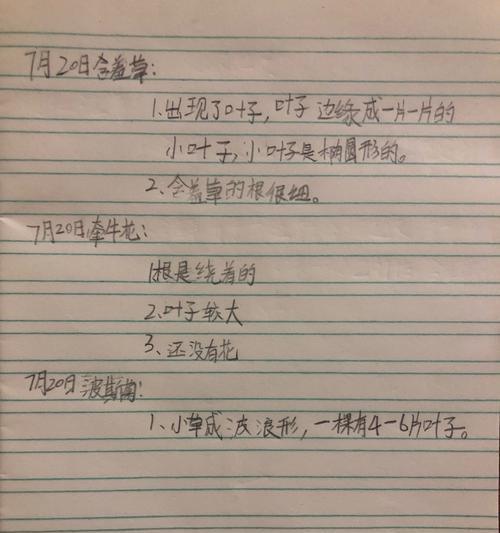 7月20日含羞草：
1.出现了叶子，叶子边缘成一片一片的
小叶子，小叶子是椭圆形的。
2、含羞草的根很细。
7月20日牵牛花：
1根是绕着的
2.叶子较大
3、还没有花
7月20日波斯菊：
1、小草成波浪形，一棵有4-6片叶子。